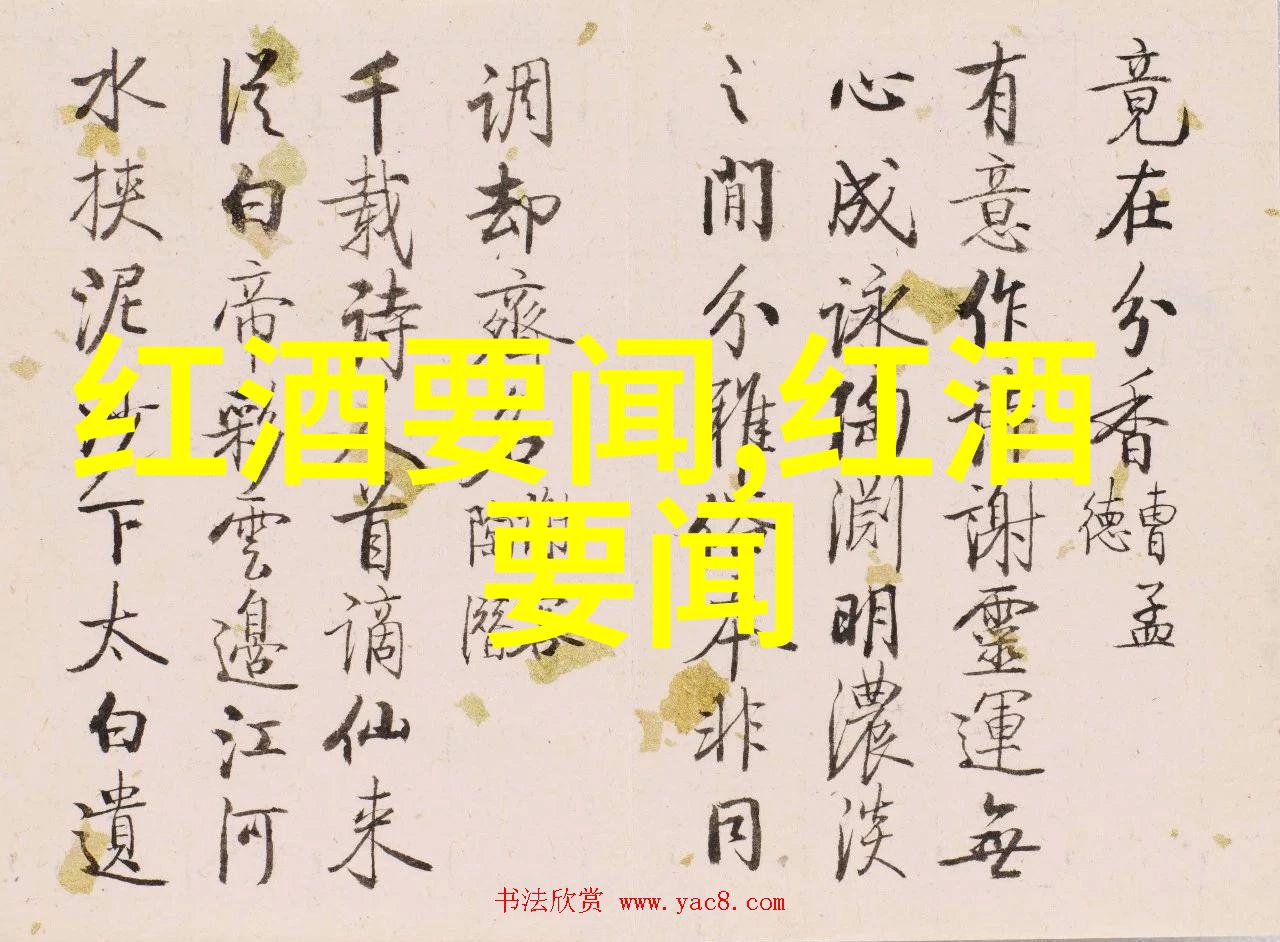 竟在分香曹孟
德
有意作詩謝靈運無
心成詠陶淵明濃淡
之間分雅俗本非同
调却齊名謝客
陶潛
千载诗人首謫仙来
從白帝彩雲邊江河
水挾泥沙下太白遺
红酒要闻,红酒
要闻
书法欣赏 www.yac8.com